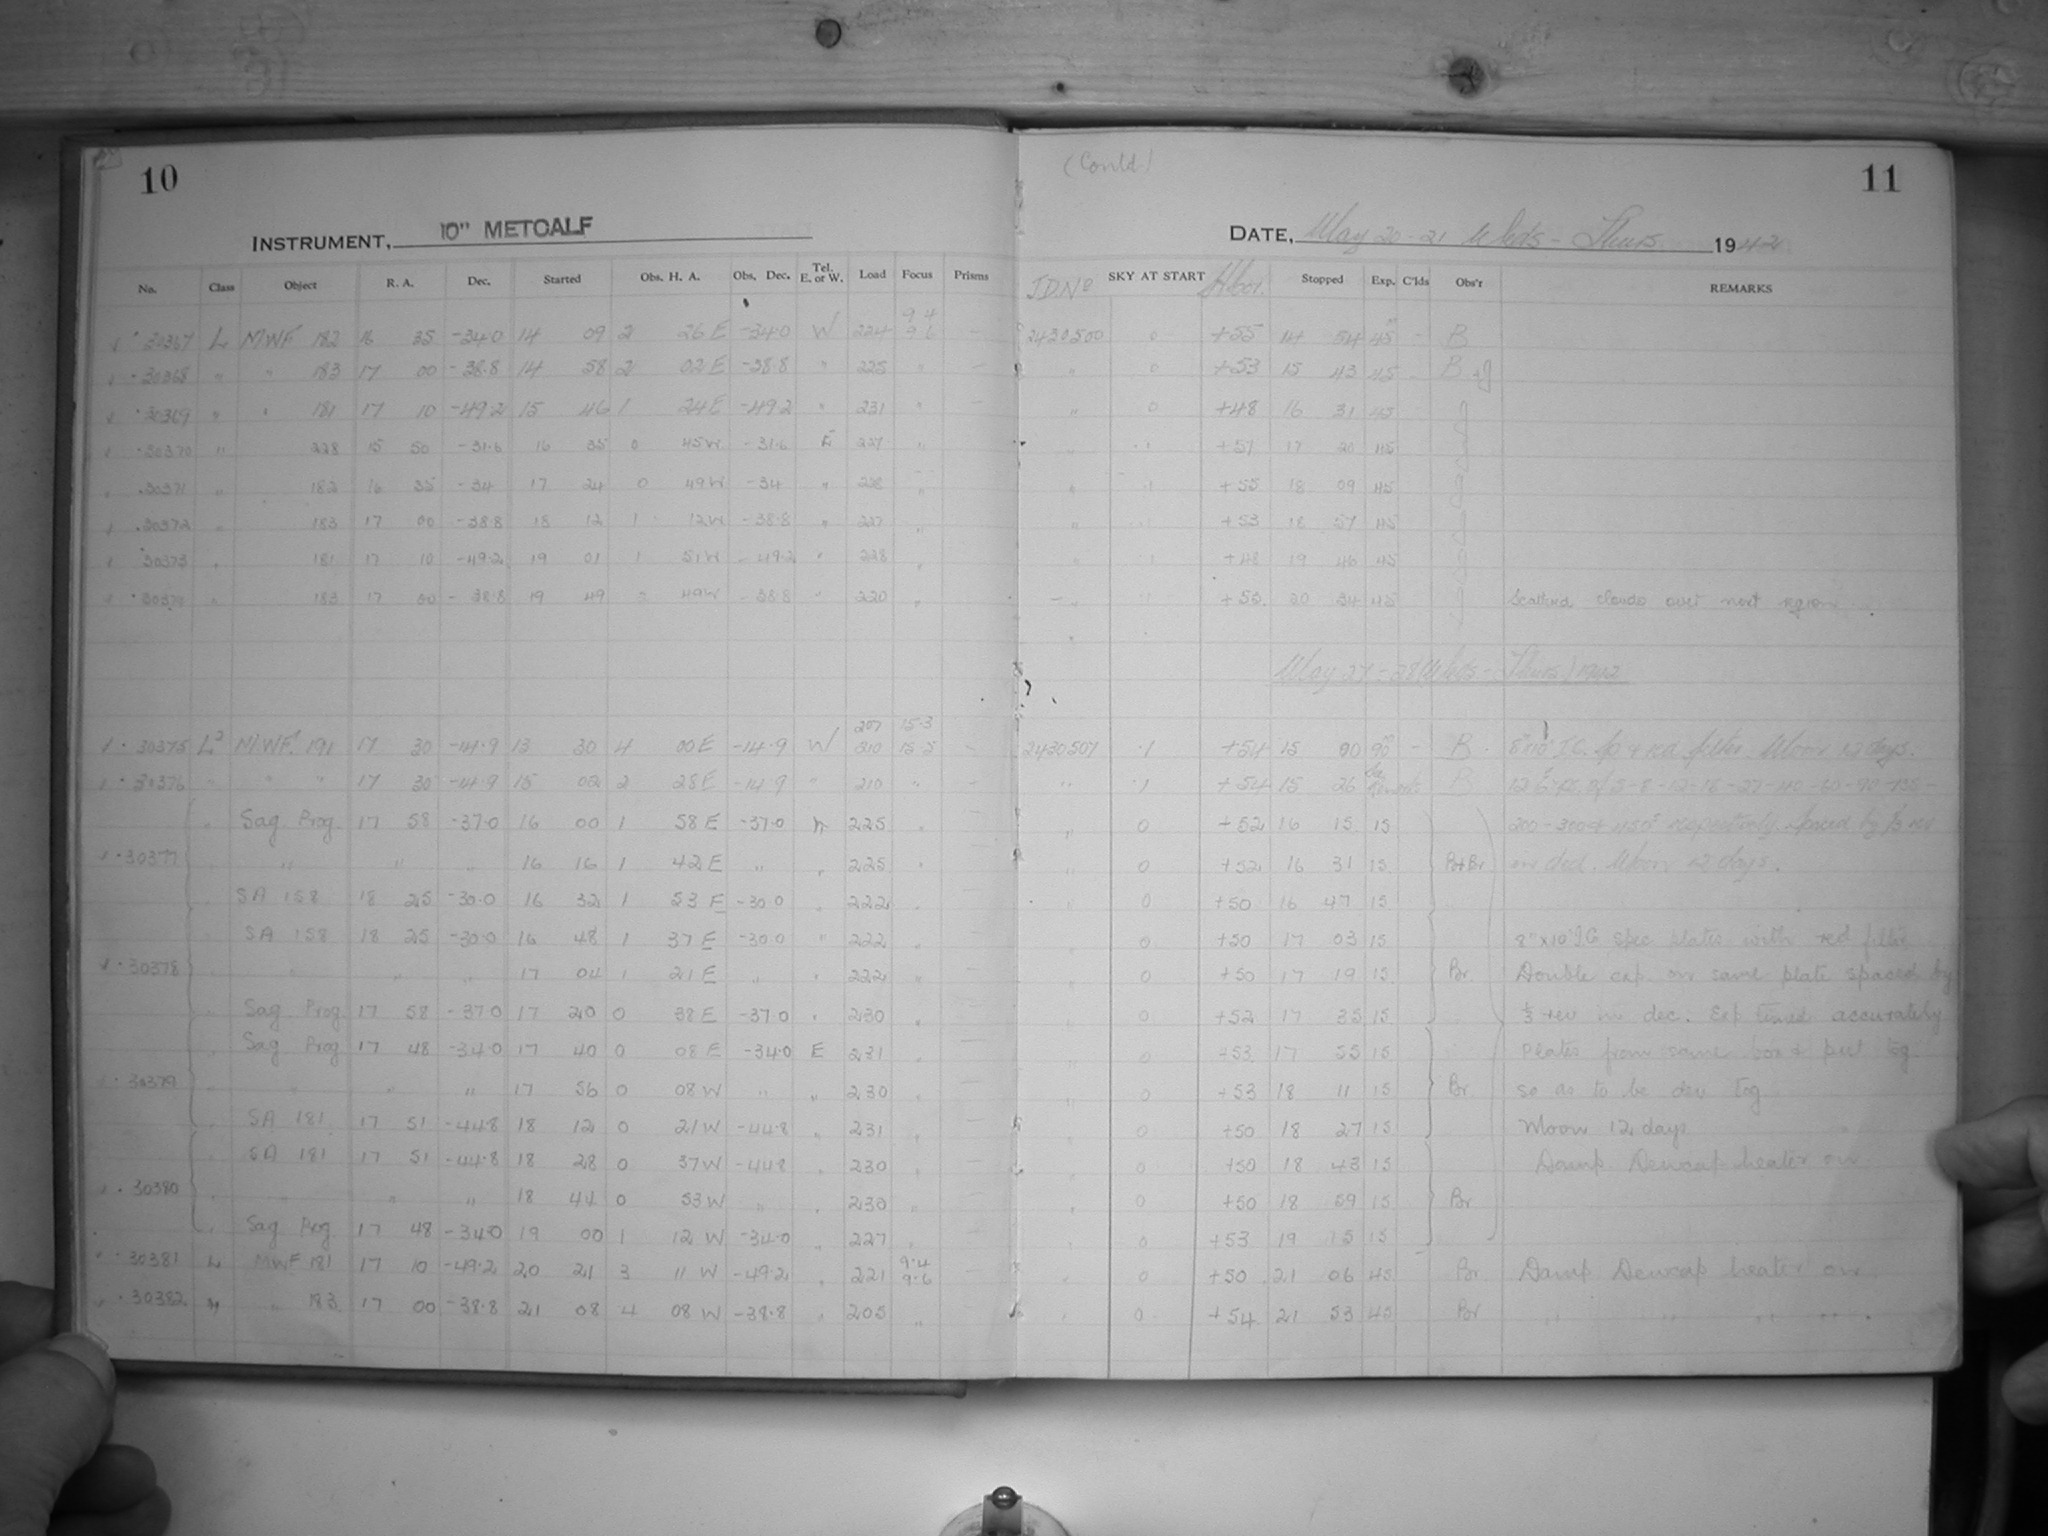 10
INSTRUMENT, 10" METCALF
No. Class Object R. A. Dec. Started Obs. H. A. Obs. Dec. Tel. E. or W. Load Focus Prisms
30367 L MWF 182 16 35 -34.0 14 09 2 26 E -34.0 W 224 9.4 9.6 -
30368 " " 183 17 00 -38.8 14 58 2 02 E -38.8 " 225 " -
30369 " " 181 17 10 -49.2 15 46 1 24 E -49.2 " 231 " -
30370 " 228 15 50 -31.6 16 35 0 45 W -31.6 E 227 "
30371 " 182 16 35 -34 17 24 0 49 W -34 "
30372 " 183 17 00 -38.8 18 12 1 12 W -38.8 " 227 "
30373 " 181 17 10 -49.2 19 01 1 51 W -49.2 " 228 "
183 17 00 -38.8 19 49 49 W -38.8 " 220 "
30375 L MWF 191 17 30 -14.9 13 30 4 00 E -14.9 W 207 210 15.3 15.5 -
30376 " " " 17 30 -14.9 15 02 2 28 E -14.9 " 210 " -
" Sag. Prog. 17 58 -37.0 16 00 1 58 E -37.0 225 "
30377 " " " 16 16 1 42 E " " 225 "
SA 158 18 25 -30.0 16 32 1 53 E -30.0 " 222
SA 158 18 25 -30.0 16 48 1 37 E -30.0 " 222
30378 " " " 17 04 1 21 E " " 222 "
Sag Prog 17 58 -37.0 17 20 0 38 E -37.0 " 230 "
Sag Prog 17 48 -34.0 17 40 0 08 E -34.0 E 231 "
30379 " " " 17 56 0 08 W " " 230 "
SA 181 17 51 -44.8 18 12 0 21 W -44.8 " 231 "
SA 181 17 51 -44.8 18 28 0 37 W -44.8 " 230 "
30380 " " " 18 44 0 53 W " " 230 "
Sag Prog 17 48 -34.0 19 00 1 12 W -34.0 " 227 "
30381 L MWF 181 17 10 -49.2 20 21 3 11 W -49.2 " 221 9.4 9.6
30382 " " 183 17 00 -38.8 21 08 4 08 W -38.8 " 205 "
(Contd)
11
DATE, May 20-21 Weds - Thurs 1942
J.D. No SKY AT START Hor. Stopped Exp. C'lds Obs'r REMARKS
2430500 0 +55 14 54 45 - B
" 0 +53 15 43 45 - B + g
" 0 +48 16 31 45 g
" .1 +57 17 20 45 g
" .1 +55 18 09 45 g
" .1 +53 18 57 45 g
" .1 +48 19 46 45 g
.1 20 34 45 g Scattered clouds over next region
May 27-28 Weds - Thurs 1942
2430507 .1 +54 15 00 90 - B 8"x10" I.C. red filter. Moon 12 days.
" .1 +54 15 26 B 12 of 5-8-12-18-27-40-60-90-135-
" 0 +52 16 15 15 200-300 + 450 respectively. Spaced by 1/3 rev
" 0 +52 16 31 15 in decl. Moon 12 days.
" 0 +50 16 47 15
" 0 +50 17 03 15 8"x10" I.C spec plates with red filter
" 0 +50 17 19 15 Br Double exp. on same plate spaced by
" 0 +52 17 35 15 1/3 rev in dec. Exp timed accurately
" 0 +53 17 55 15 Plates from same box
" 0 +53 18 11 15 Br so as to be dev tog
" 0 +50 18 27 15 Moon 12 days
" 0 +50 18 43 15 Damp. Dewcap heater on
" 0 +50 18 59 15 Br
" 0 +53 19 15 15
" 0 +50 21 06 45 Br Damp Dewcap heater on
" 0 +54 21 53 45 Br " " " "